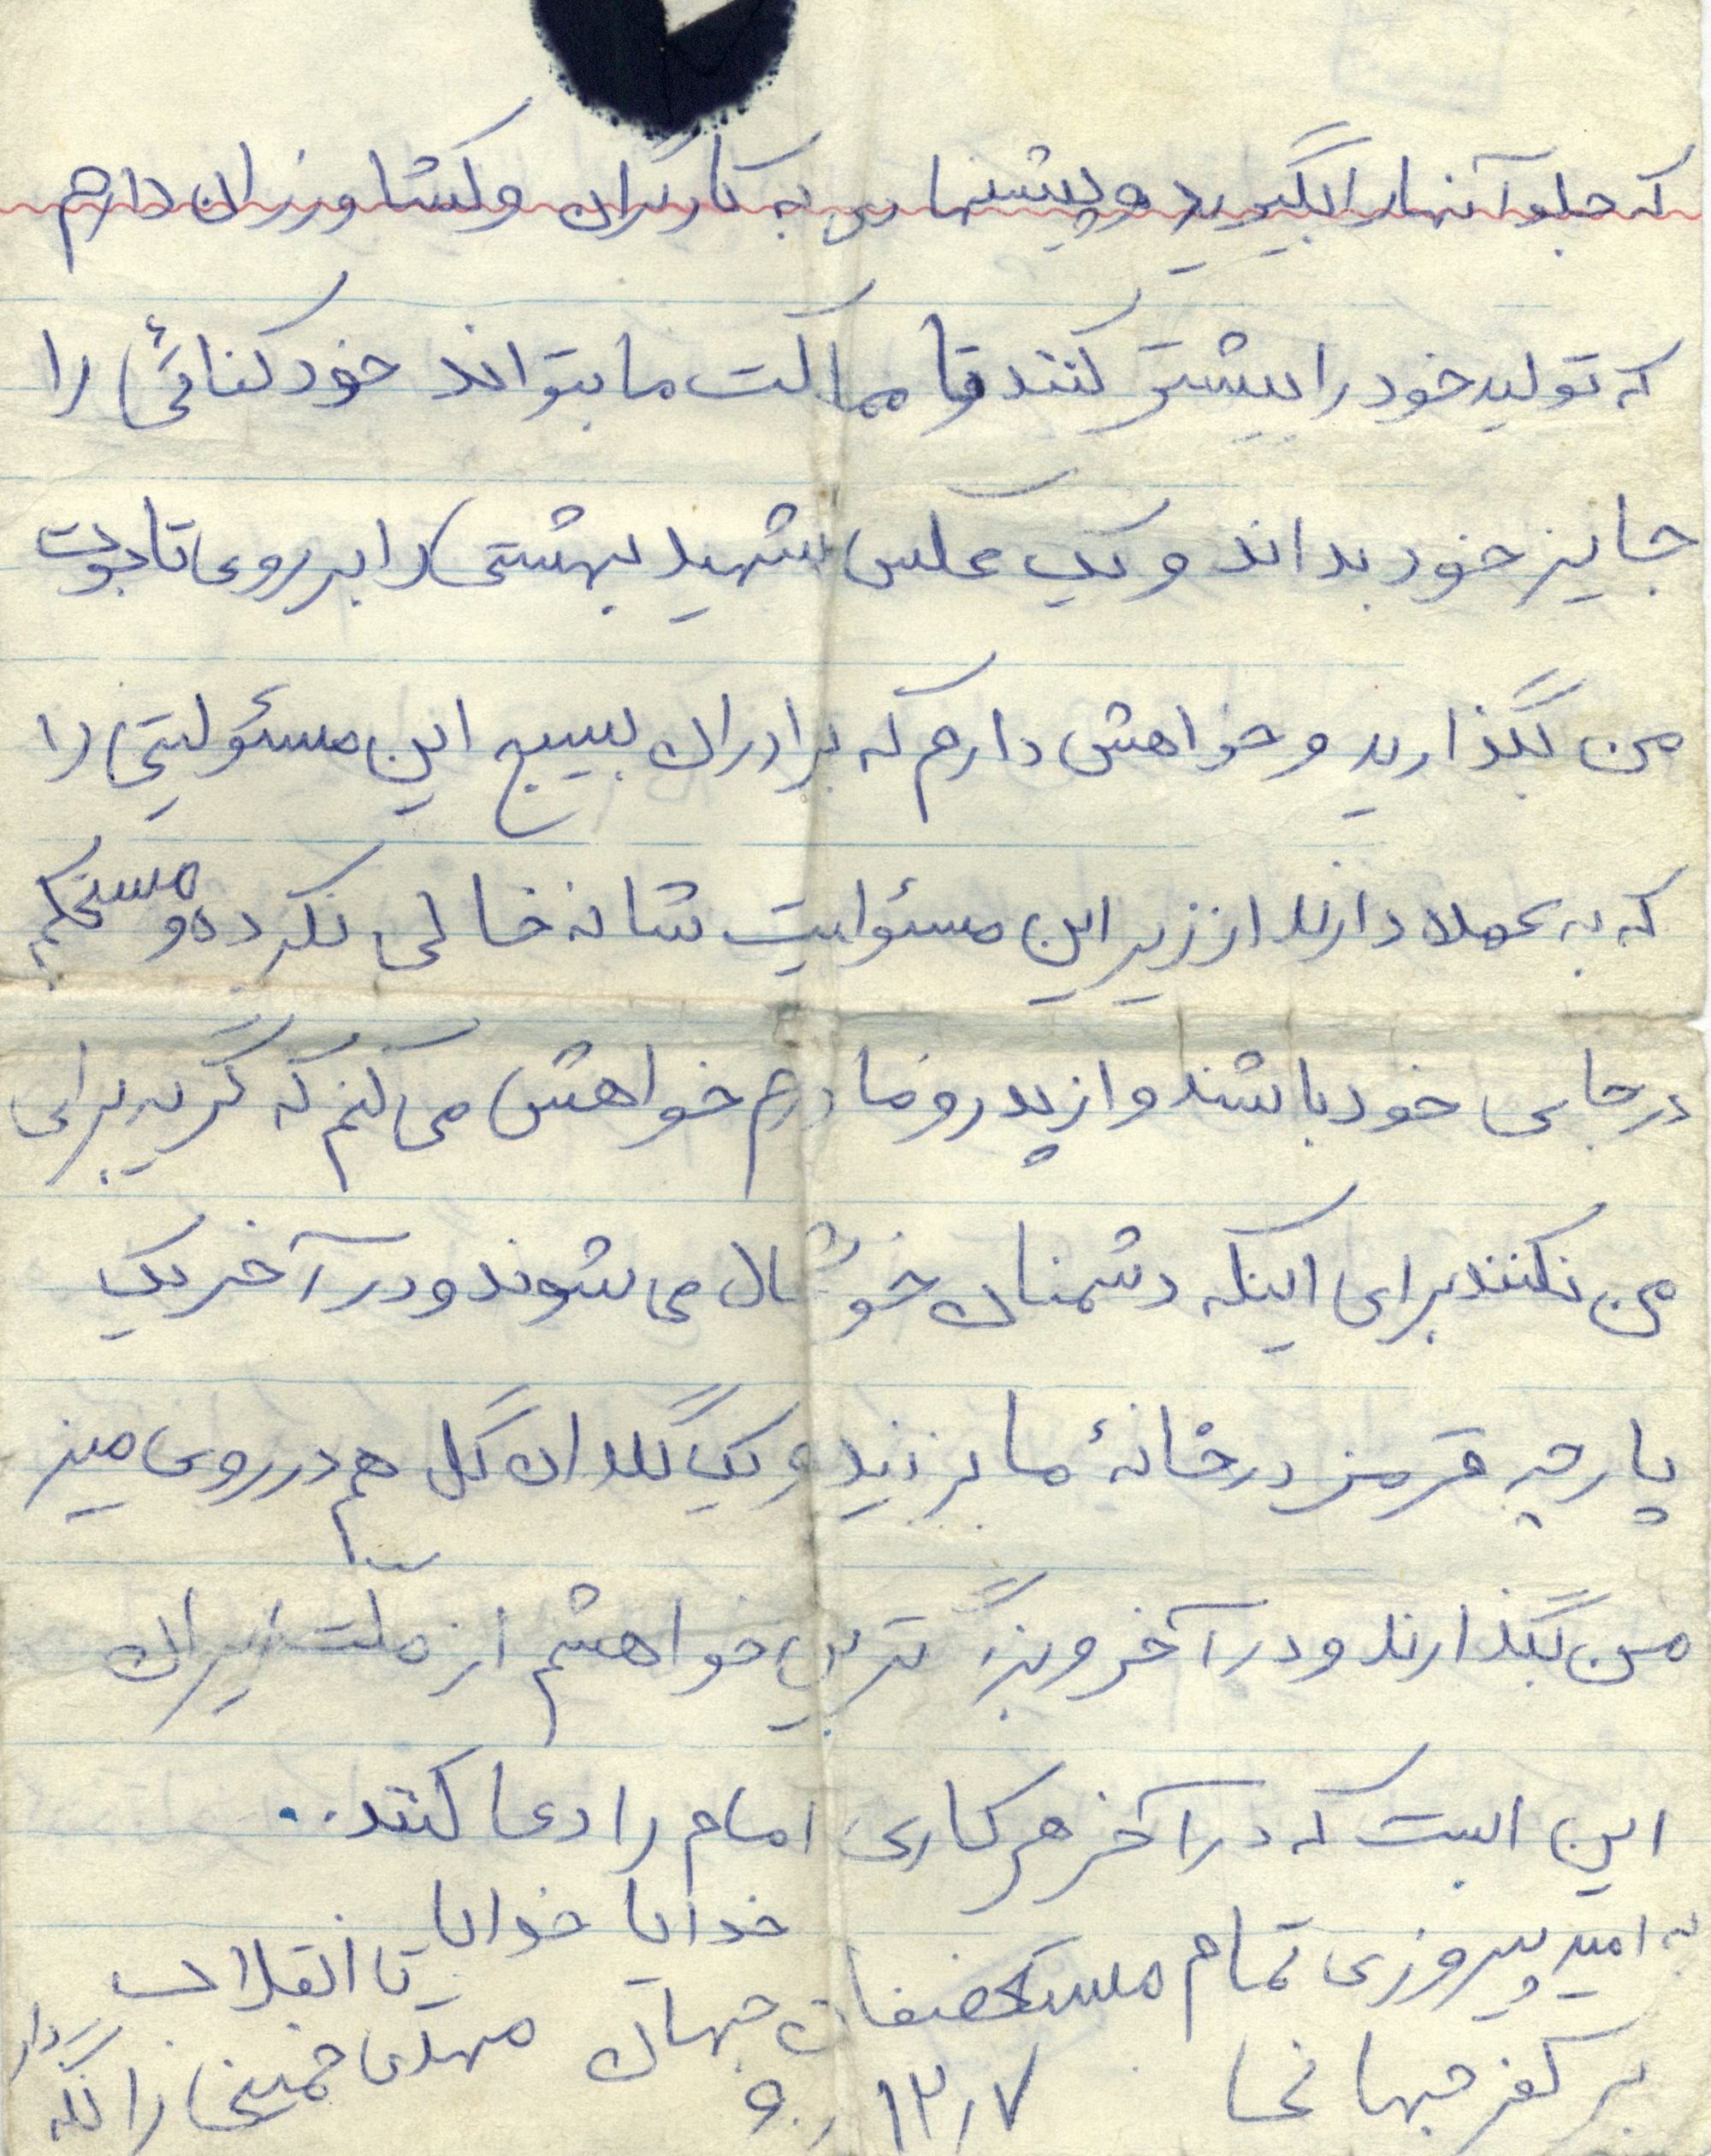 که جلو آنها را بگیرید و پیشنهادی به کارگران و کشاورزان دارم
که تولید خود را بیشتر کنند تا مماکت ما بتواند خودکفائی را
جایز خود بداند و یک عکس شهید بهشتی را بر روی تابوت
من بگذارید و خواهش دارم که برادران بسیج این مسئولیتی را
که به عهده دارند از زیر این مسئولیت شانه خالی نکرده و مستحکم
در جایی خود باشند و از پدر و مادرم خواهش می کنم که گریه برای
من نکنند برای اینکه دشمنان خوشال می شوند و در آخر یک
پارچه قرمز در خانهٔ ما بزنید و یک گلدان گل هم در روی میز
من بگذارند و در آخر و بزرگ ترین خواهشم از ملت ایران
این است که در آخر هر کاری امام را دعا کنند..
به امید پیروزی تمام مستضعفان جهان
بر کفر جهانی
خدایا خدایا تا انقلاب
مهدی خمینی را نگه دار
۱۳٫۷ ٫۶۰